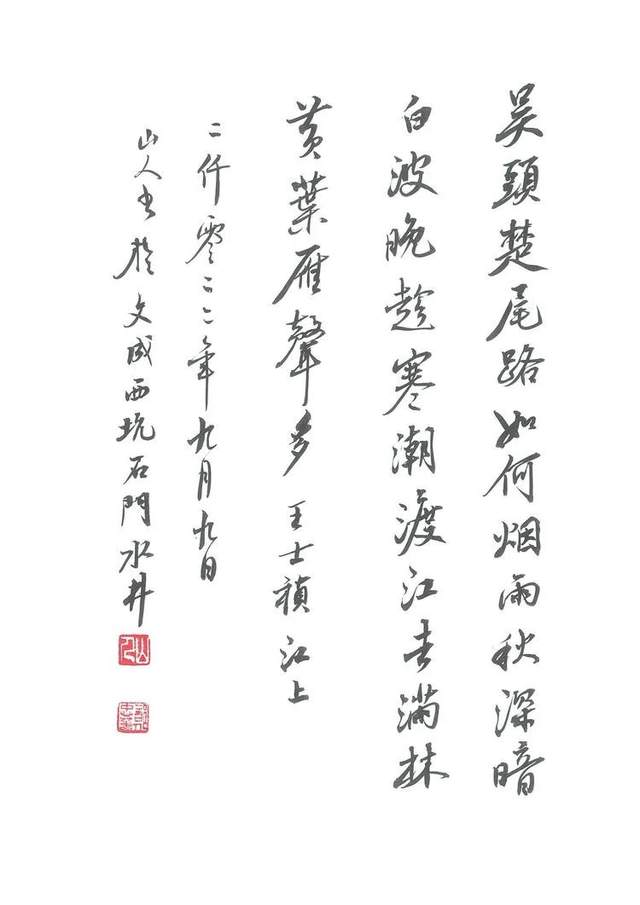 吴頭楚尾路如何烟雨秋深暗
白波晚趁寒潮渡江去滿林
黄葉雁聲多 王士禎江上
二仟零二二年九月九日
山人书於文成西坑石門水井
山人